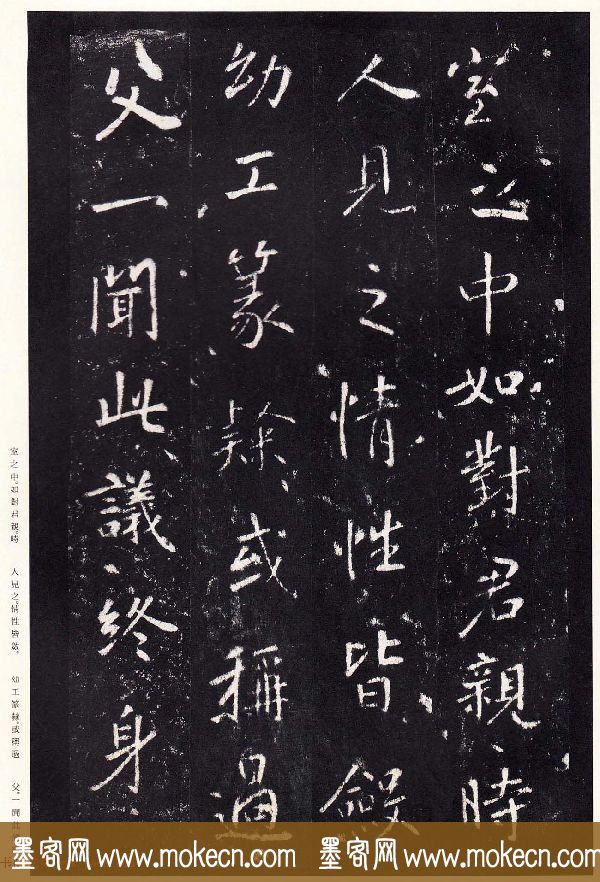 室之中如對君親時
人見之情性皆斂
幼工篆隸或稱過
父一聞此議終身
室之中。如對君親。時 人見之。情性皆斂。 幼工篆隸。或稱過 父。一聞此
墨客网 www.mokecn.com 墨客网 www.mokecn.com